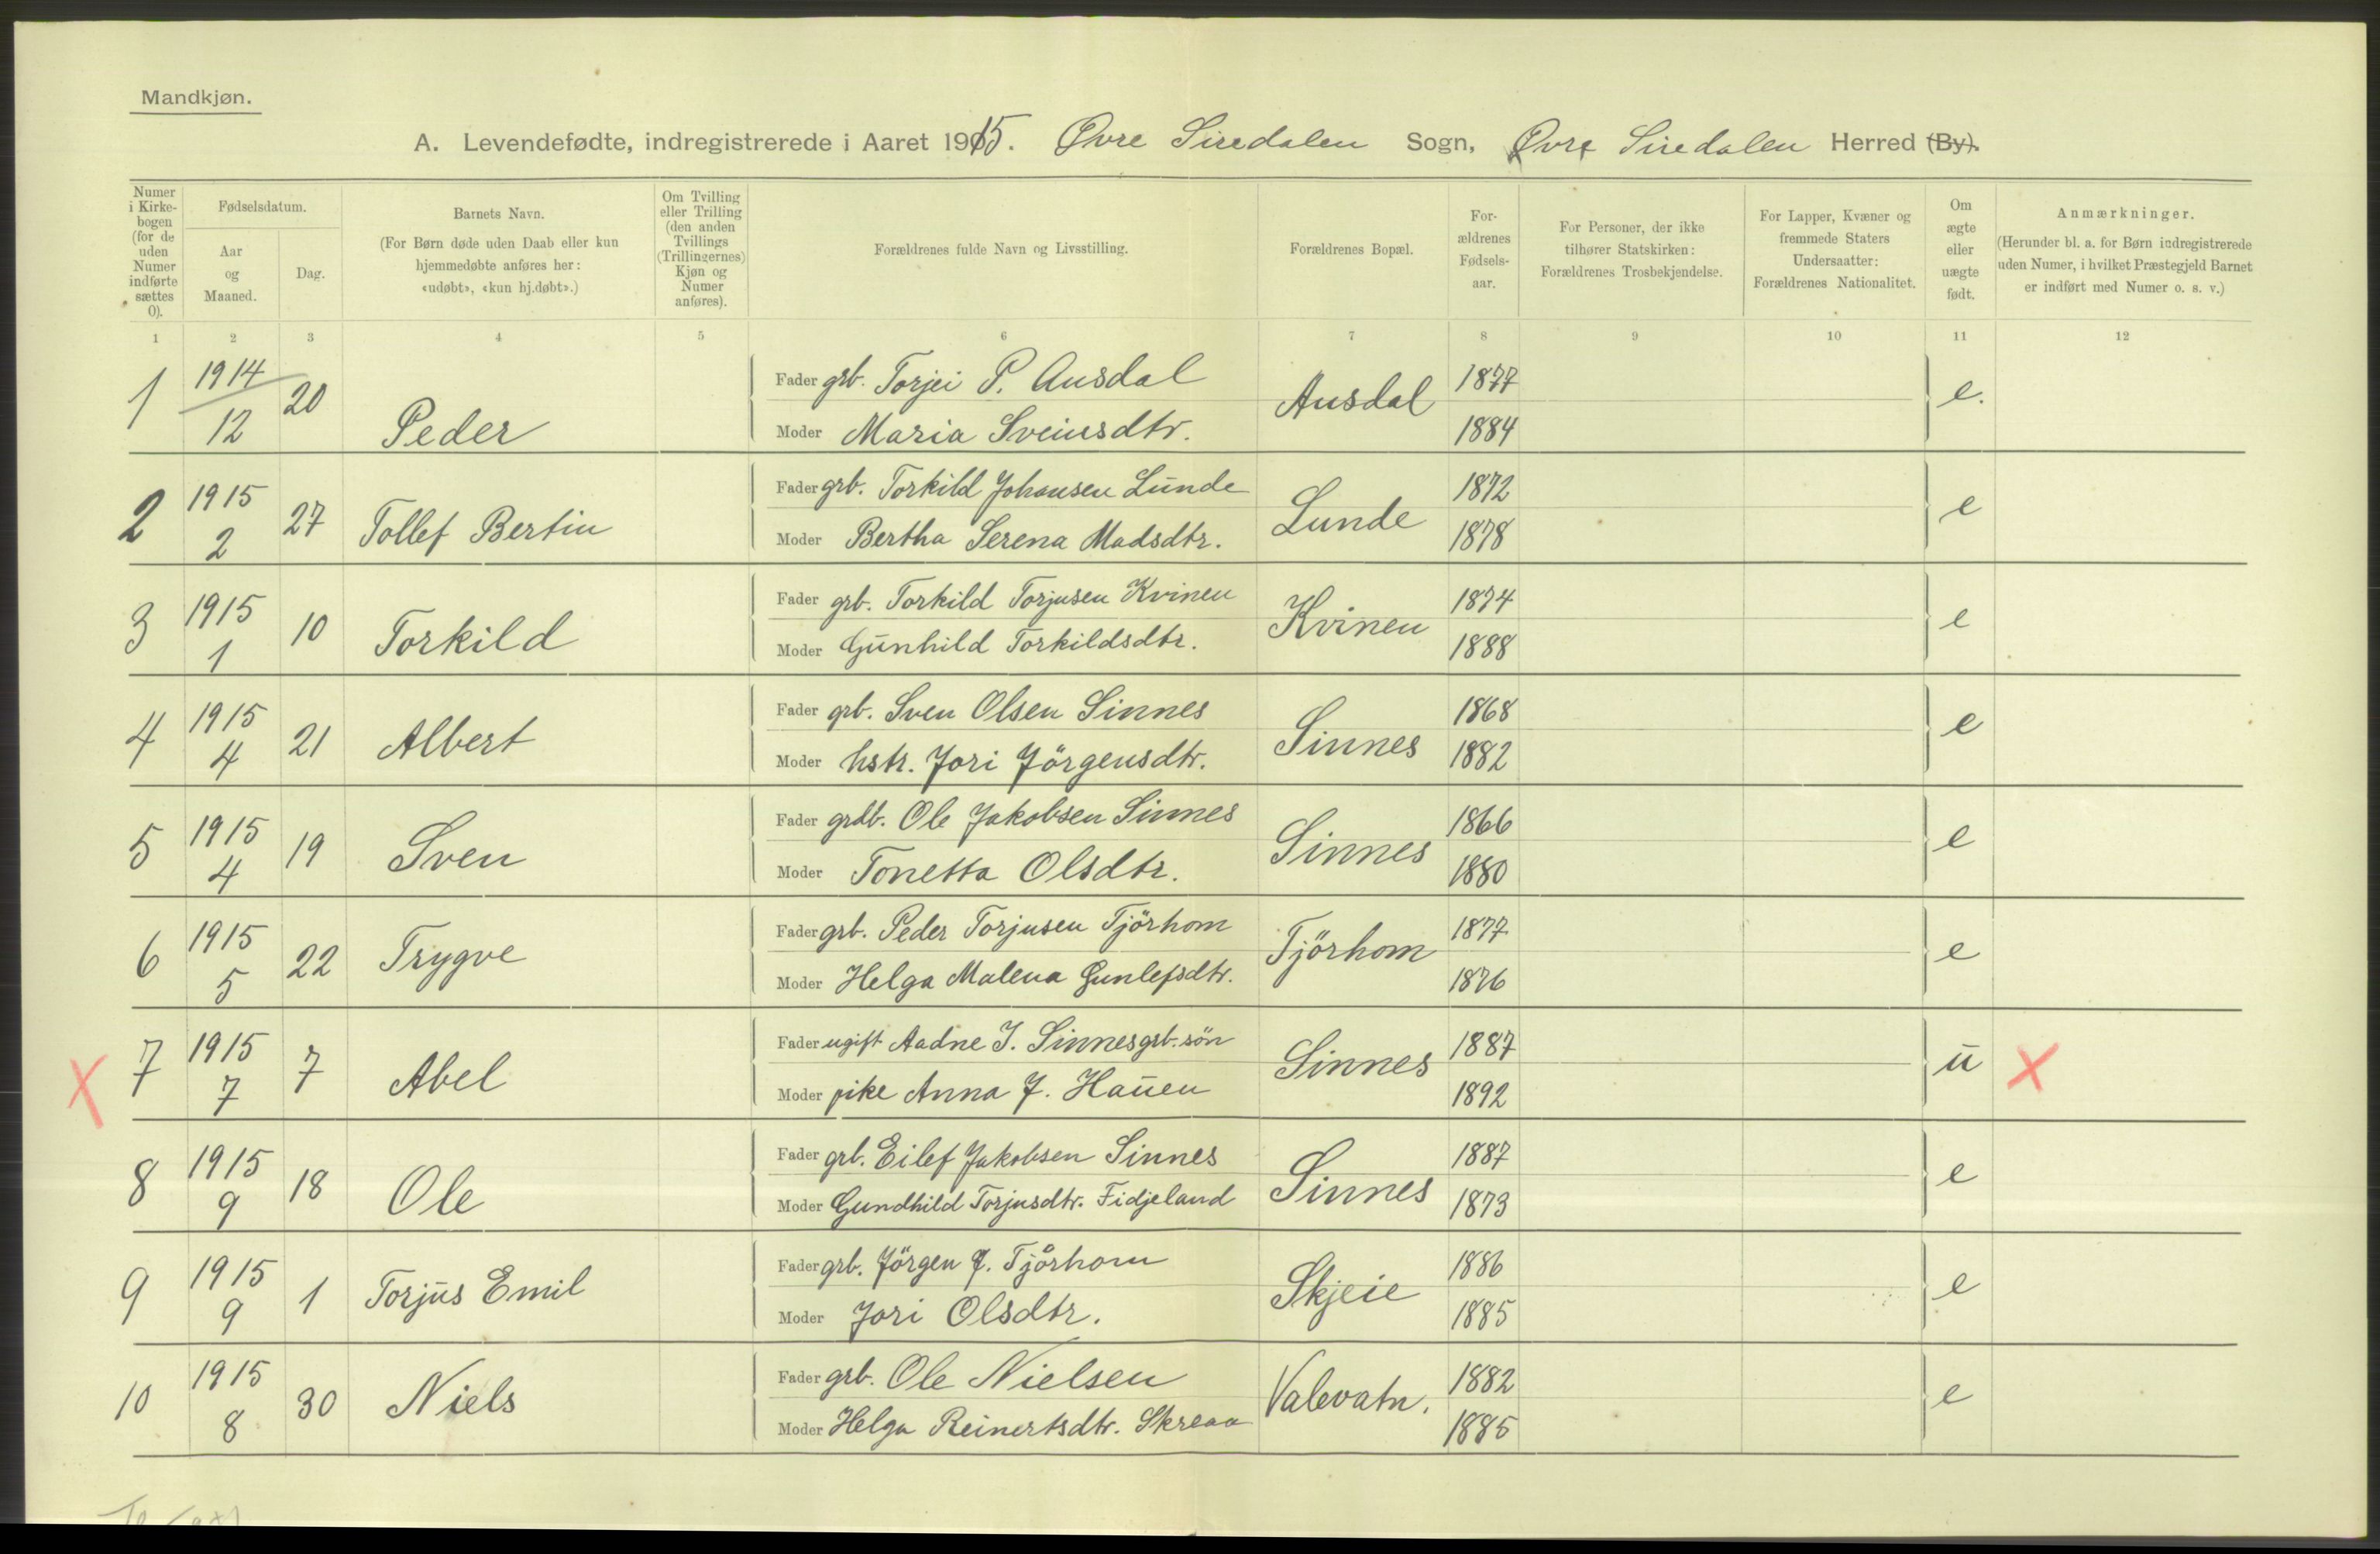 Mandkjøn.
A. Levendefødte, indregistrerede i Aaret 1915. Øvre Siredalen Sogn, Øvre Siredalen Herred (By).
Numer i Kirke-bogen (for de uden Numer indførte sættes 0).
Fødselsdatum.
Aar og Maaned.
Dag.
Barnets Navn.
(For Børn døde uden Daab eller kun hjemmedøbte anføres her: «udøbt», «kun hj.døbt».)
Om Tvilling eller Trilling (den anden Tvillings (Trillingernes) Kjøn og Numer anføres).
Forældrenes fulde Navn og Livsstilling.
Forældrenes Bopæl.
For-ældrenes Fødsels-aar.
For Personer, der ikke tilhører Statskirken: Forældrenes Trosbekjendelse.
For Lapper, Kvæner og fremmede Staters Undersaatter: Forældrenes Nationalitet.
Om ægte eller uægte født.
Anmærkninger.
(Herunder bl. a. for Børn indregistrerede uden Numer, i hvilket Præstegjeld Barnet er indført med Numer o. s. v.)
1 2 3 4 5 6 7 8 9 10 11 12
1 1914 12 20 Peder Fader grb. Torjei P. Ausdal Ausdal 1877 e.
Moder Maria Sveinsdtr. 1884
2 1915 2 27 Tollef Bertin Fader grb. Torkild Johansen Lunde Lunde 1872 e
Moder Bertha Serena Madsdtr. 1878
3 1915 1 10 Torkild Fader grb. Torkild Torjusen Kvinen Kvinen 1874 e
Moder Gunhild Torkildsdtr. 1888
4 1915 4 21 Albert Fader grb. Sven Olsen Sinnes Sinnes 1868 e
Moder hstr. Jori Jörgensdtr. 1882
5 1915 4 19 Sven Fader grdb. Ole Jakobsen Sinnes Sinnes 1866 e
Moder Tonetta Olsdtr. 1880
6 1915 5 22 Trygve Fader grb. Peder Torjusen Tjörhom Tjörhom 1877 e
Moder Helga Malena Gunlefsdtr. 1876
X 7 1915 7 7 Abel Fader ugift Aadne J. Sinnes grb.sön Sinnes 1887 u X
Moder pike Anna J. Hauen 1892
8 1915 9 18 Ole Fader grb. Eilef Jakobsen Sinnes Sinnes 1887 e
Moder Gundhild Torjusdtr. Fidjeland 1873
9 1915 9 1 Torjus Emil Fader grb. Jörgen J. Tjörhom Skjeie 1886 e
Moder Jori Olsdtr. 1885
10 1915 8 30 Niels Fader grb. Ole Nielsen Valevatn. 1882 e
Moder Helga Reinertsdtr. Skreaa 1885